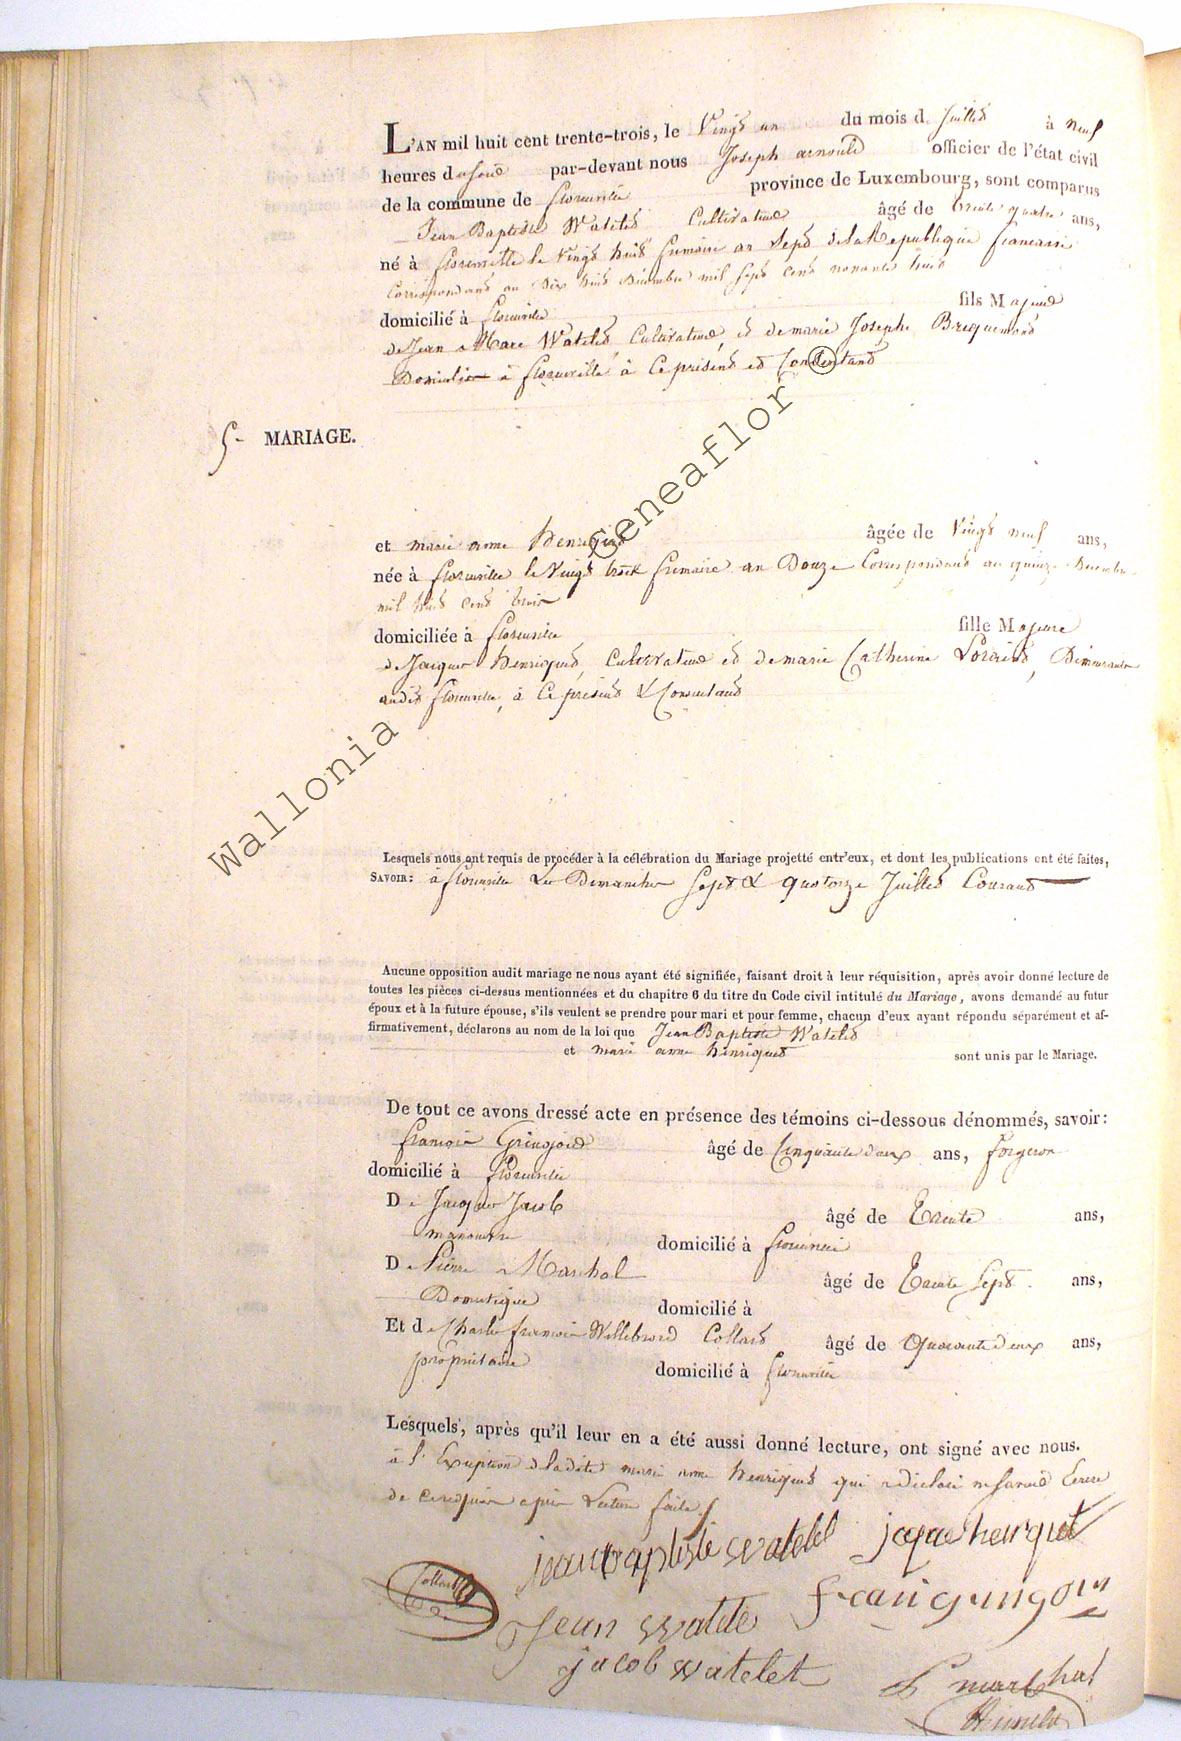 L'AN mil huit cent trente-trois, le Vingt un du mois de Juillet à neuf
heures du soir par-devant nous Joseph arnould officier de l'état civil
de la commune de florenville province de Luxembourg, sont comparus
Jean Baptiste Watelet Cultivateur âgé de trente quatre ans,
né à florenville le Vingt huit frimaire an Sept de la Republique francaise
Correspondant au Dix huit Décembre mil Sept cent nonante huit
domicilié à florenville fils Majeur
de Jean Marc Watelet Cultivateur, et de marie Josephe Bricquemont
Domiciliés à florenville à Ce présent et Consentant
5. MARIAGE.
et marie anne henriquet âgée de Vingt neuf ans,
née à florenville le Vingt trois frimaire an Douze Correspondant au quinze Décembre
mil huit cent trois
domiciliée à florenville fille Majeure
de Jacques henriquet, Cultivateur et de marie Catherine , Demeurant
audit florenville, à Ce présent & Consentant
Lesquels nous ont requis de procéder à la célébration du Mariage projetté entr'eux, et dont les publications ont été faites,
SAVOIR: à florenville Les Dimanches Sept & quatorze Juillet Courant
Aucune opposition audit mariage ne nous ayant été signifiée, faisant droit à leur réquisition, après avoir donné lecture de
toutes les pièces ci-dessus mentionnées et du chapitre 6 du titre du Code civil intitulé du Mariage, avons demandé au futur
époux et à la future épouse, s'ils veulent se prendre pour mari et pour femme, chacun d'eux ayant répondu séparément et af-
firmativement, déclarons au nom de la loi que Jean Baptiste Watelet
et marie anne henriquet sont unis par le Mariage.
De tout ce avons dressé acte en présence des témoins ci-dessous dénommés, savoir:
françois Gringoire âgé de Cinquante deux ans, forgeron
domicilié à florenville
De Jacques Jacob âgé de Trente ans,
manouvre domicilié à florenville
De Pierre Marchal âgé de Trente Sept ans,
Domestique domicilié à
Et de Charles françois Willebrord Collard âgé de Quarante deux ans,
propriétaire domicilié à florenville
Lesquels, après qu'il leur en a été aussi donné lecture, ont signé avec nous.
à l'Exception de ladite marie anne henriquet qui a déclaré ne savoir Ecrire
de ce requise après Lecture faite
jean baptiste watelet jaque henriquet
Collard
Jean watelet
jacob watelet
P marechal
Wallonia Geneaflor ©